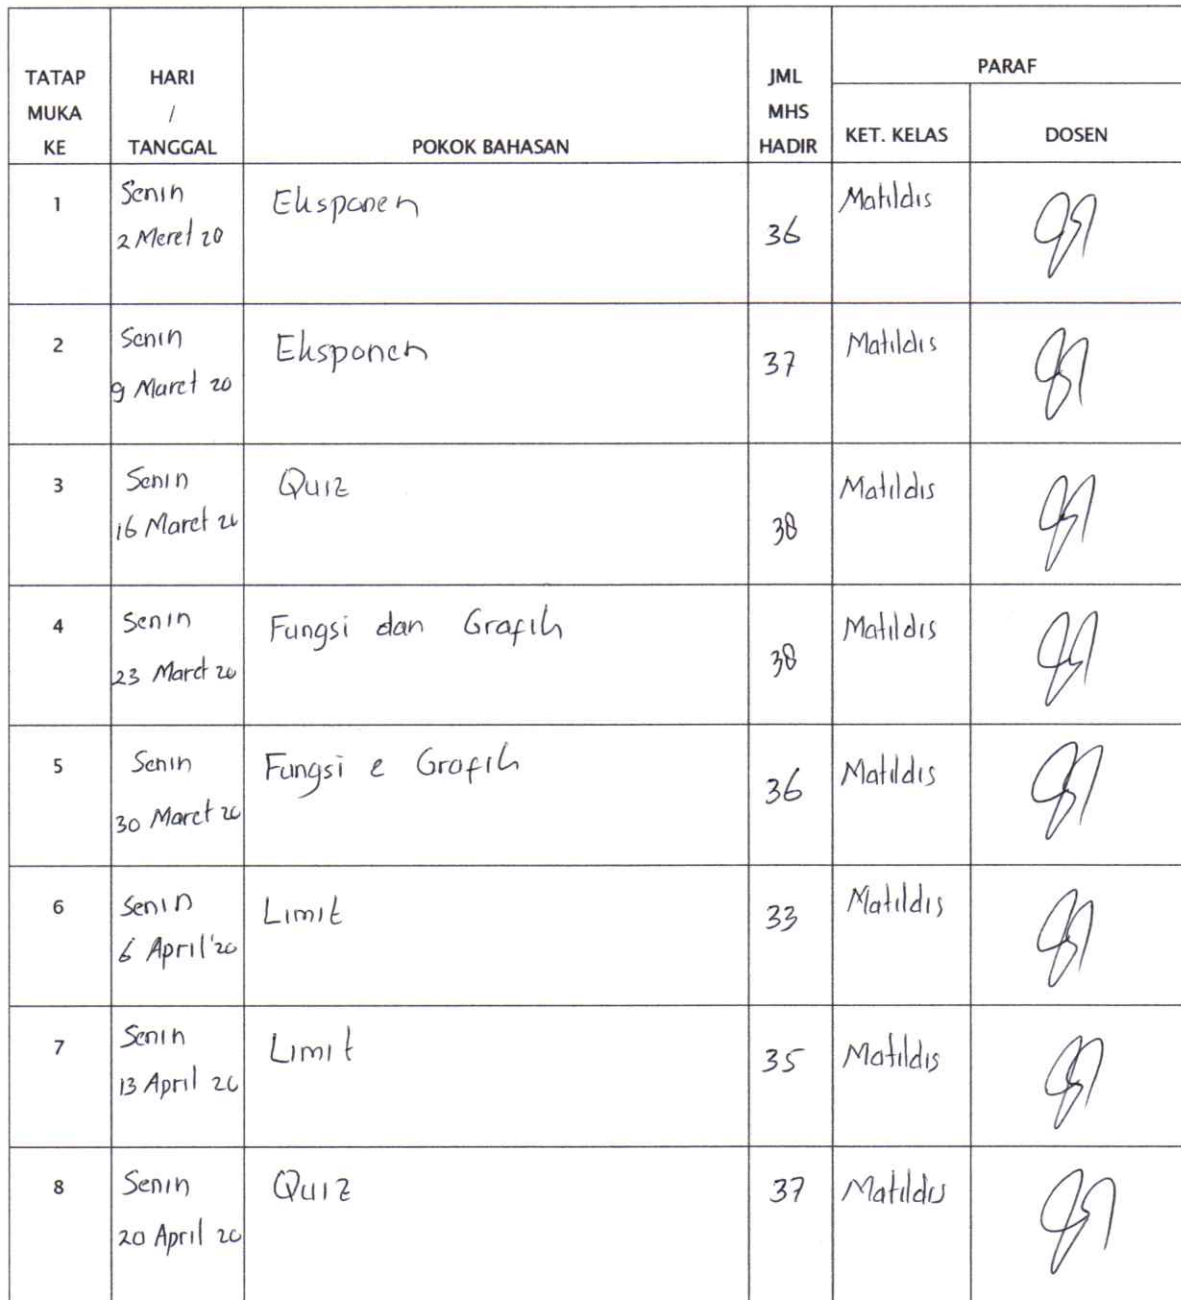 TATAP MUKA KE
HARI / TANGGAL
POKOK BAHASAN
JML MHS HADIR
PARAF
KET. KELAS
DOSEN
1
Senin
2 Meret 20
Eksponen
36
Matildis
2
Senin
9 Maret 20
Eksponen
37
Matildis
3
Senin
16 Maret 20
Quiz
38
Matildis
4
Senin
23 Maret 20
Fungsi dan Grafik
38
Matildis
5
Senin
30 Maret 20
Fungsi e Grafik
36
Matildis
6
Senin
6 April '20
Limit
33
Matildis
7
Senin
13 April 20
Limit
35
Matildis
8
Senin
20 April 20
Quiz
37
Matildis